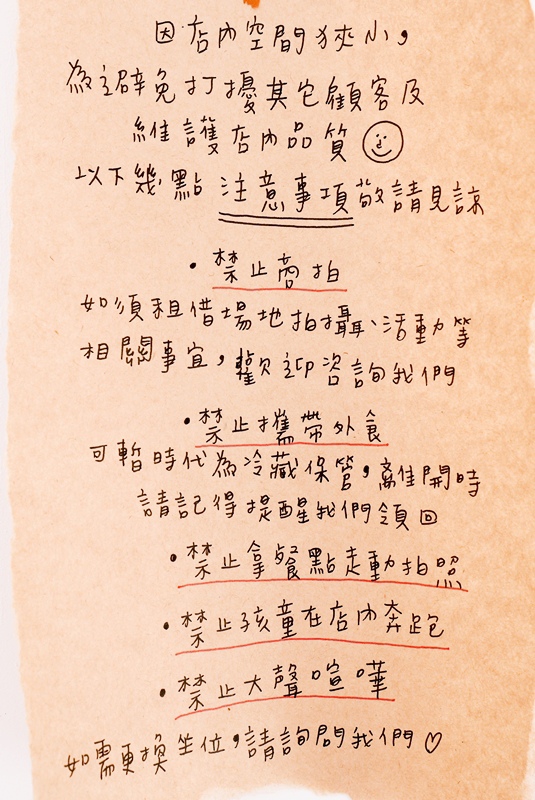 因店內空間狹小，
為避免打擾其它顧客及
維護店內品質
以下幾點注意事項敬請見諒
•禁止商拍
如須租借場地拍攝、活動等
相關事宜，歡迎咨詢我們
•禁止攜帶外食
可暫時代為冷藏保管，離開時
請記得提醒我們領回
•禁止拿餐點走動拍照
•禁止孩童在店內奔跑
•禁止大聲喧嘩
如需更換坐位，請詢問我們♡